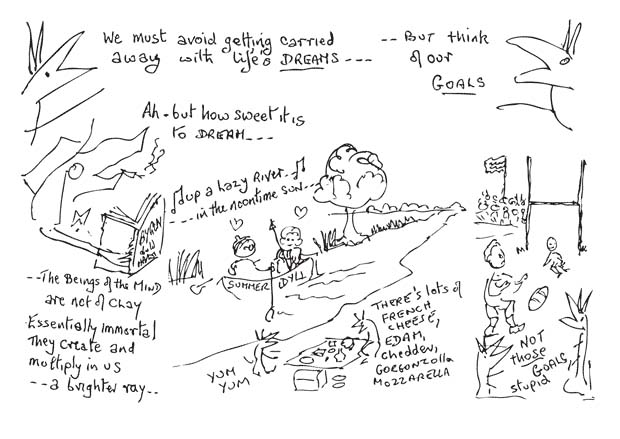 We must avoid getting carried
away with life's DREAMS ---
-- BUT think
of our
GOALS
Ah - but how sweet it is
to DREAM ---
up a Lazy River --
-- in the noontime sun --
BYRON
SUMMER IDYLL
-- The Beings of the MIND
are not of Clay
Essentially immortal
They create and
multiply in us
-- a brighter ray --
YUM
YUM
THERE'S lots of
FRENCH
CHEESE,
EDAM,
Chedder,
GORGONZOLLA
MOZZARELLA
NOT
those
GOALS,
stupid